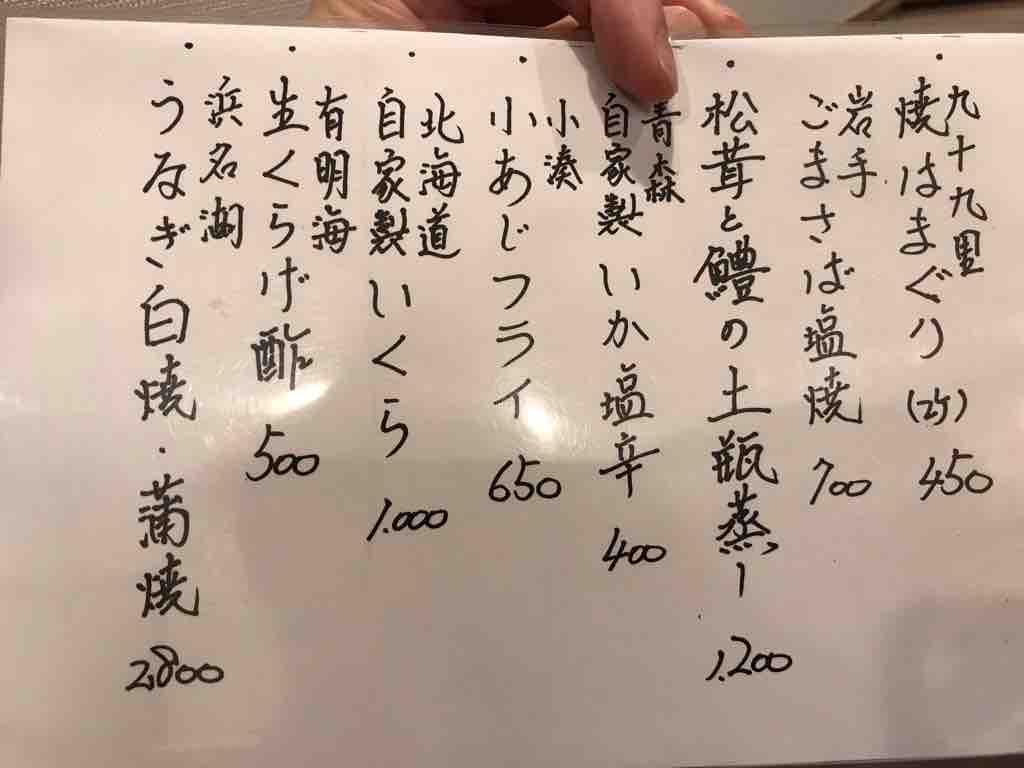 九十九里
・焼はまぐり(2ケ) 450
岩手
ごまさば塩焼 700
・松茸と鱧の土瓶蒸し 1.200
青森
自家製いか塩辛 400
小湊
・小あじフライ 650
北海道
・自家製いくら 1.000
有明海
・生くらげ酢 500
浜名湖
・うなぎ白焼・蒲焼 2.800